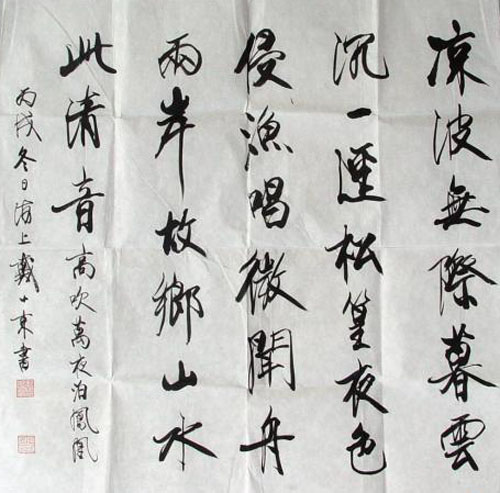 凉波無際暮雲
沉一逕松篁夜色
侵漁唱微聞舟
兩岸故鄉山水
此清音高吹萬夜泊鳳凰
丙戌冬日海上戴小京書